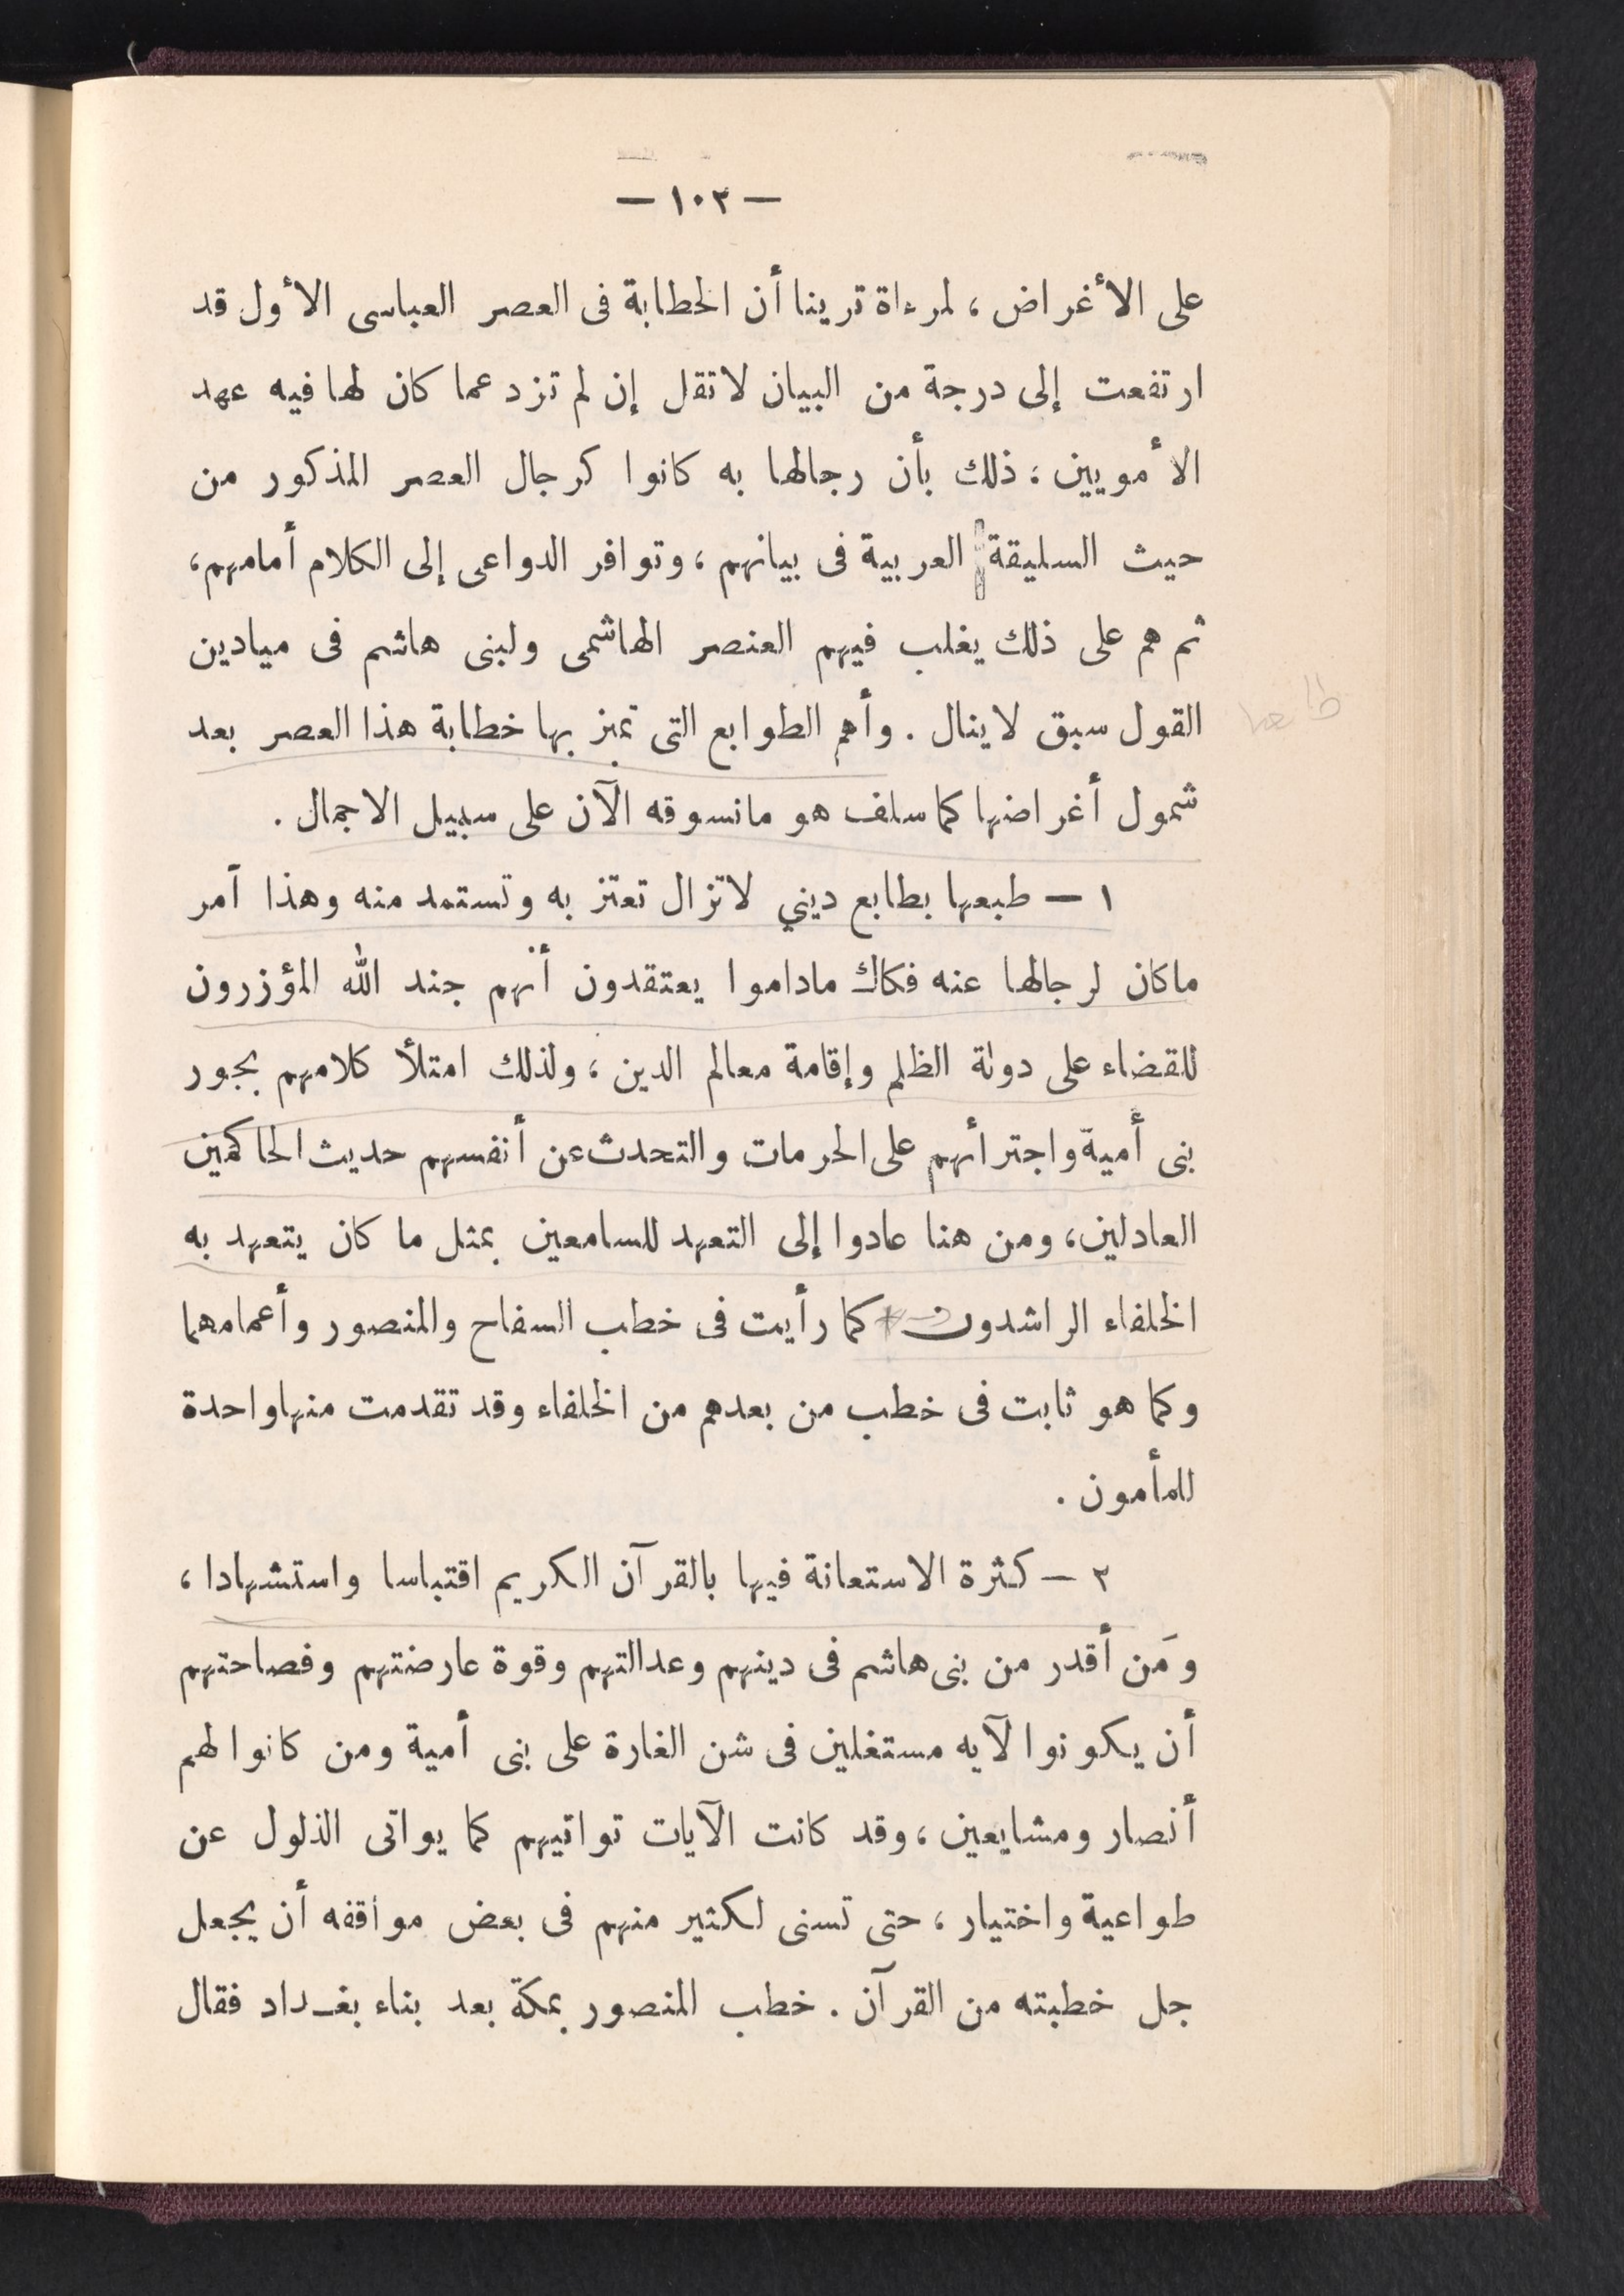 — ١٠٣ —
على الأغراض ، لمرءاة ترينا أن الخطابة فى العصر العباسى الأول قد
ارتفعت إلى درجة من البيان لا تقل إن لم تزد عما كان لها فيه عهد
الأمويين ؛ ذلك بأن رجالها به كانوا كرجال العصر المذكور من
حيث السليقة العربية فى بيانهم ، وتوافر الدواعى إلى الكلام أمامهم ،
ثم هم على ذلك يغلب فيهم العنصر الهاشمى ولبنى هاشم فى ميادين
القول سبق لا ينال . وأهم الطوابع التى تميز بها خطابة هذا العصر بعد
شمول أغراضها كما سلف هو مانسوقه الآن على سبيل الاجمال .
١ — طبعها بطابع ديني لاتزال تعتز به وتستمد منه وهذا أمر
ماكان لرجالها عنه فكاك ماداموا يعتقدون أنهم جند الله المؤزرون
للقضاء على دولة الظلم وإقامة معالم الدين ، ولذلك امتلأ كلامهم بجور
بنى أمية واجترأهم على الحرمات والتحدث عن أنفسهم حديث الحاكمين
العادلين ، ومن هنا عادوا إلى التعهد للسامعين بمثل ما كان يتعهد به
الخلفاء الراشدون كما رأيت فى خطب السفاح والمنصور وأعمامهما
وكما هو ثابت فى خطب من بعدهم من الخلفاء وقد تقدمت منها واحدة
للمأمون .
٢ — كثرة الاستعانة فيها بالقرآن الكريم اقتباسا واستشهادا ،
ومَن أقدر من بنى هاشم فى دينهم وعدالتهم وقوة عارضتهم وفصاحتهم
أن يكونوا لآيه مستغلين فى شن الغارة على بنى أمية ومن كانوا لهم
أنصار ومشايعين ، وقد كانت الآيات تواتيهم كما يواتى الذلول عن
طواعية واختيار ، حتى تسنى لكثير منهم فى بعض مواقفه أن يجعل
جل خطبته من القرآن . خطب المنصور بمكة بعد بناء بغداد فقال